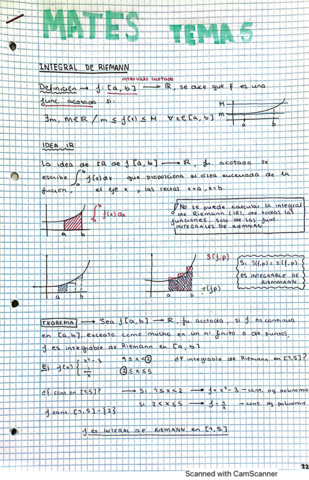 MATES TEMA 5
INTEGRAL DE RIEMANN
intervalo acotado
Definición → f: [a, b] → R, se dice que f es una
func. acotada si:
∃m, M ∈ R / m ≤ f(x) ≤ M ∀x ∈ [a, b]
M
m
a b
IDEA IR
La idea de IR de f [a, b] → R, f acotada se
escribe ∫ₐᵇ f(x) dx que proporciona el área encerrada de la
función, el eje x, las rectas x=a, x=b.
∫ₐᵇ f(x) dx
a b
No se puede calcular la integral
de Riemann (IR), de todas las
funciones, solo de las func.
INTEGRALES DE RIEMANN
a b
S(f,p)
s(f,p)
a b
Si S(f,p) = s(f,p)
ES INTEGRABLE DE
RIEMANN
TEOREMA → Sea f [a, b] → R, f acotada, si f es continua
en [a, b], excepto como mucho en un nº finito o de puntos,
f es integrable de Riemann en [a, b]
Ej f(x) { x² - 3 1 ≤ x < 2 ¿f integrable de Riemann en [1,5]?
2 ≤ x ≤ 5
¿f. cont en [1,5]? → Si 1 ≤ x < 2 → f = x² - 3 → cont. pq polinomio
Si 2 < x ≤ 5 → → cont. pq polinomio
f cont. [1,5] - {2}
f es INTEGRAL DE RIEMANN en [1,5]
22
Scanned with CamScanner